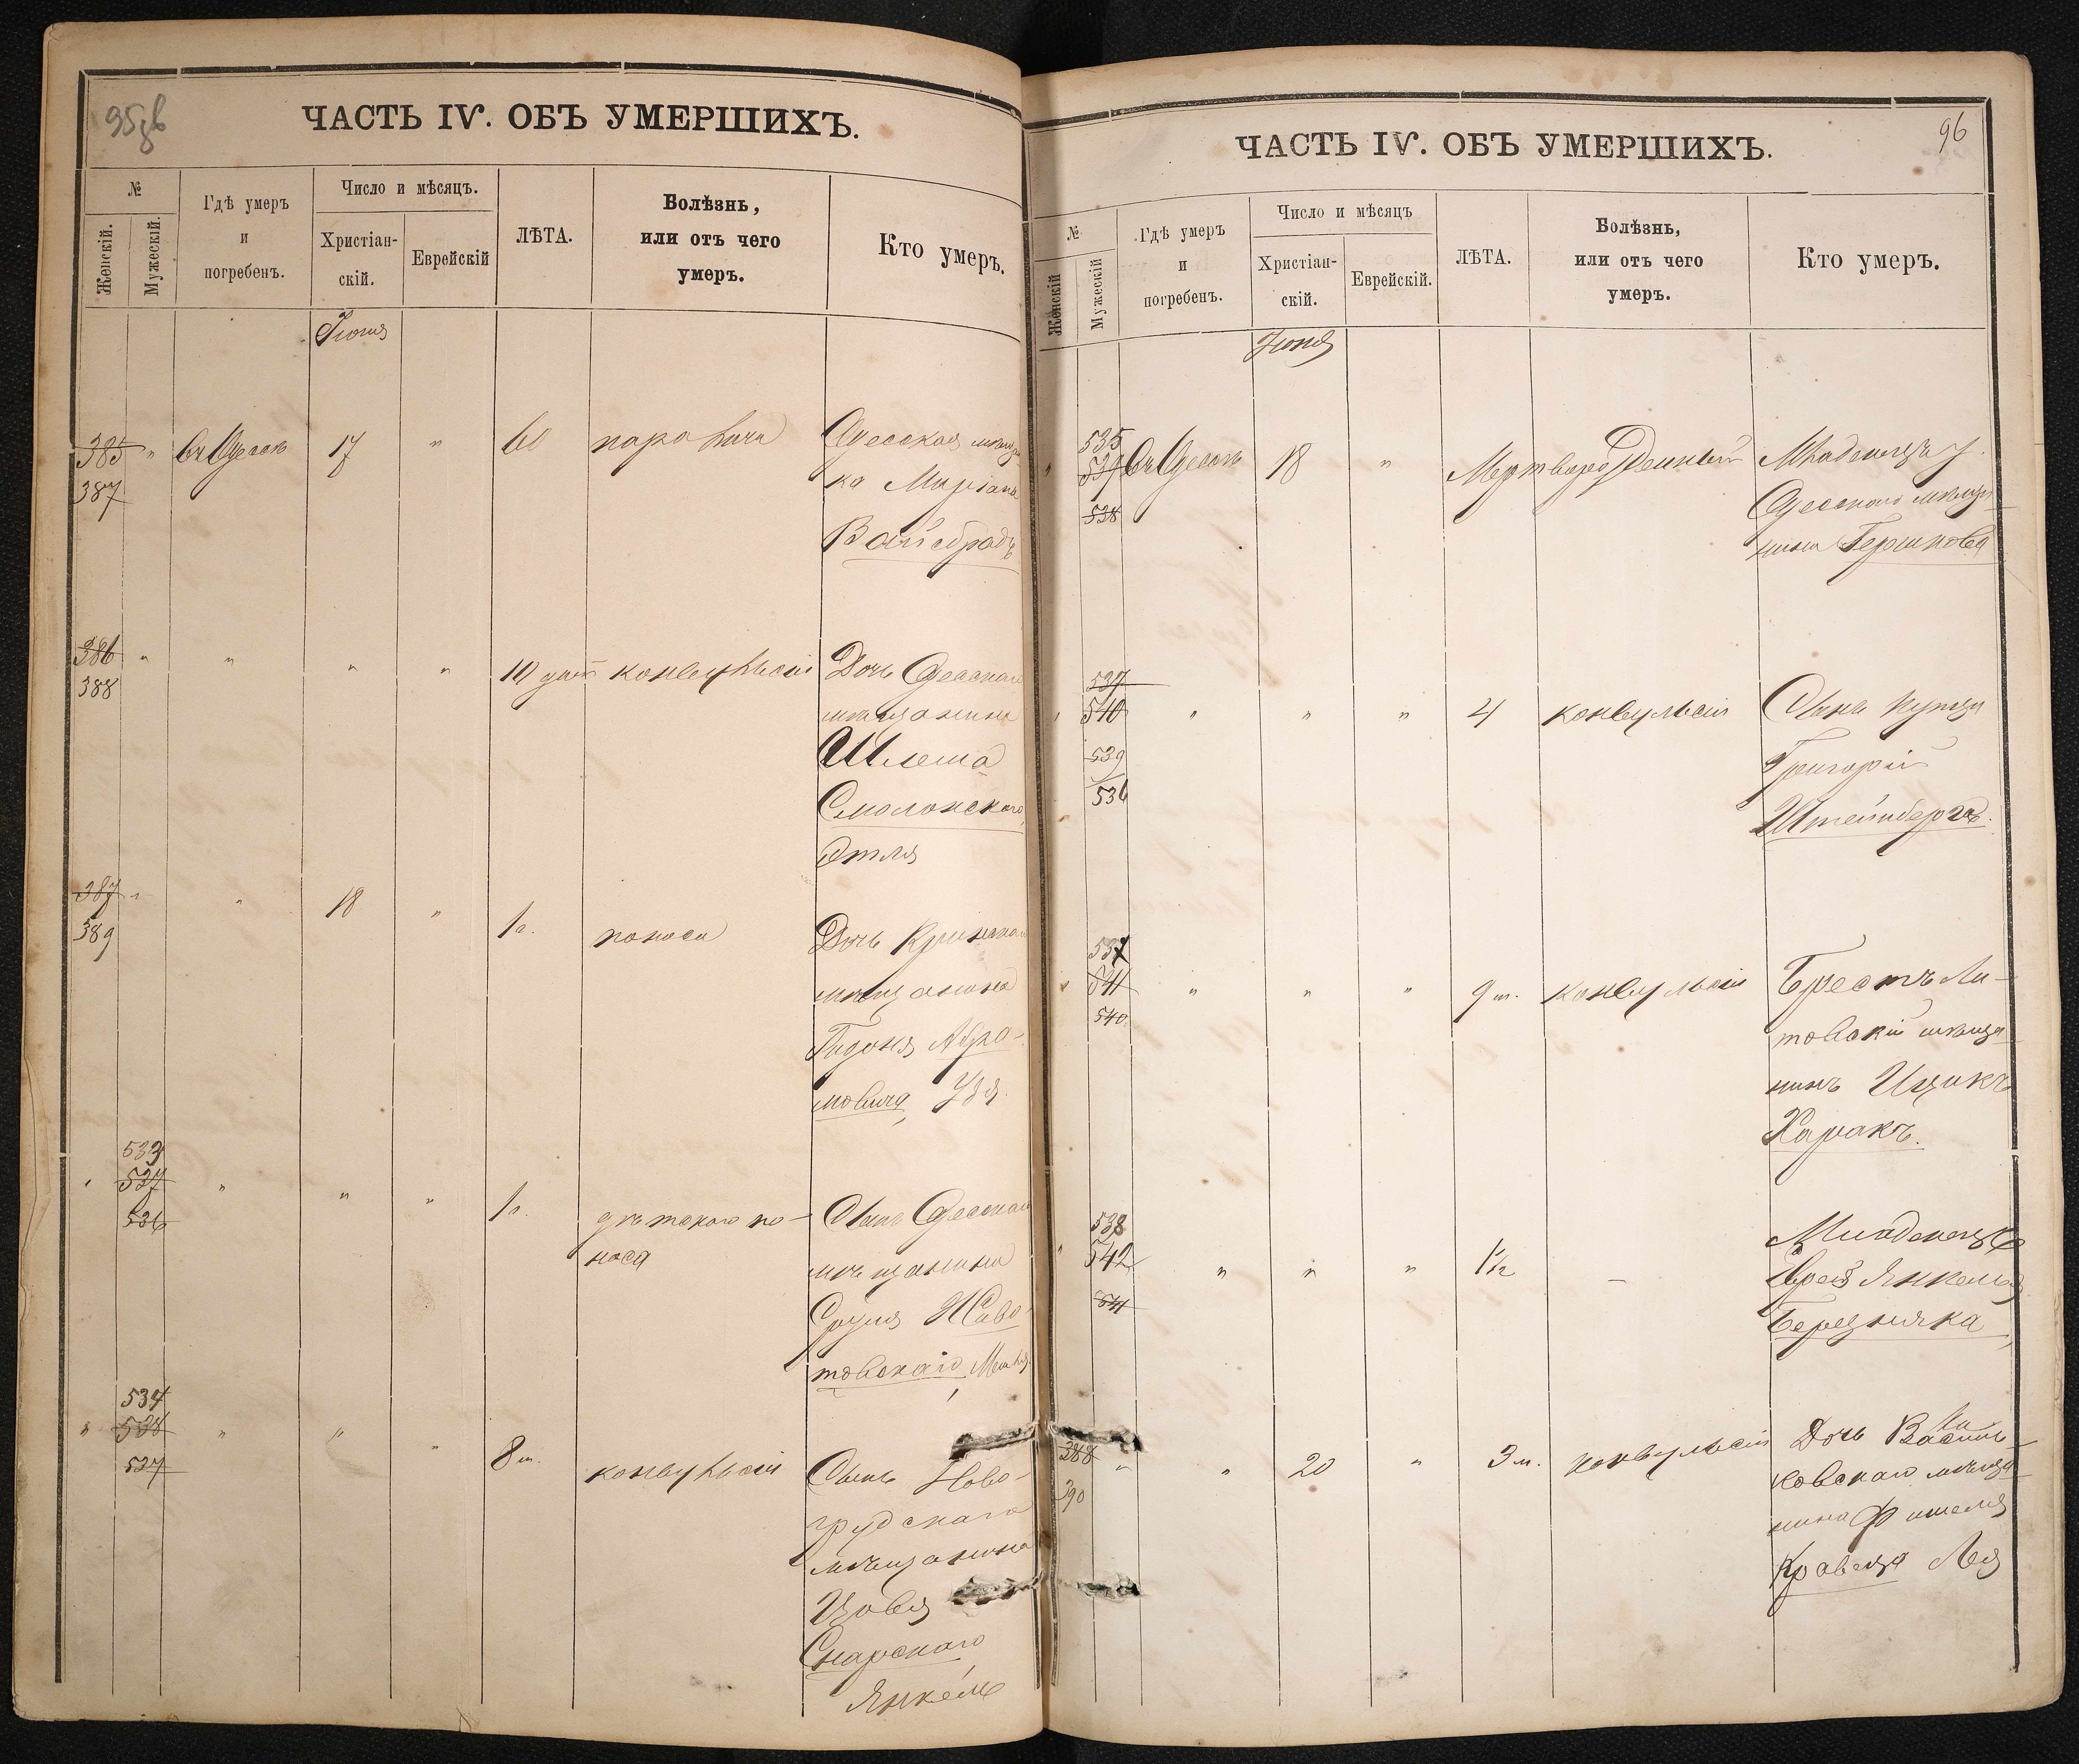 95зв
ЧАСТЬ IV. ОБЪ УМЕРШИХЪ.
№
Женскій.
Мужескій.
Гдѣ умеръ
и
погребенъ.
Число и мѣсяцъ.
Христіан-
скій.
Еврейскій
ЛѢТА.
Болѣзнь,
или отъ чего
умеръ.
Кто умеръ.
Іюня
385 " въ Одессѣ 17 " 60
387
Одесская мѣщан
ка Миріамъ
Вайсбрадъ
386 " " " " 10 дней конвульсіи
388
Дочь Одесскаго
мѣщанина
Шлема
Смолянскаго,
Этля
387 " " 18 " 1 г. поноса
389
Дочь
мѣщанина
Абра-
мовича,
533
" 527 " " " 1 г. дѣтскаго по-
носа
536
Сынъ Одесскаго
мѣщанина
Сруля
товскаго,
534
" 538 " " " 8 м. конвульсіи
537
Сынъ Ново-
грудскаго
мѣщанина
Снарскаго
Янкель
96
ЧАСТЬ IV. ОБЪ УМЕРШИХЪ.
№
Женскій
Мужескій
Гдѣ умеръ
и
погребенъ.
Число и мѣсяцъ
Христіан-
скій.
Еврейскій.
ЛѢТА.
Болѣзнь,
или отъ чего
умеръ.
Кто умеръ.
Іюня
535
" 539 въ Одессѣ 18 " Мертворожденный
538
Младенецъ
Одесскаго мѣща
нина Гершкова
537
" 540 " " " 4 конвульсіи
539
536
Сынъ купца
Григорій
Штейнбергъ.
537
" 541 " " " 9 м. конвульсіи
540
Брестъ-Ли-
товскій мѣща
нинъ Ицикъ
Харакъ.
538
" 542 " " " 1½ —
541
Младенецъ
Еврея Янкеля
Березняка,
388 " " 20 " 3 м. конвульсіи
390
Дочь Василь-
ковскаго мѣща
нина Фишеля
Кравеца Лея